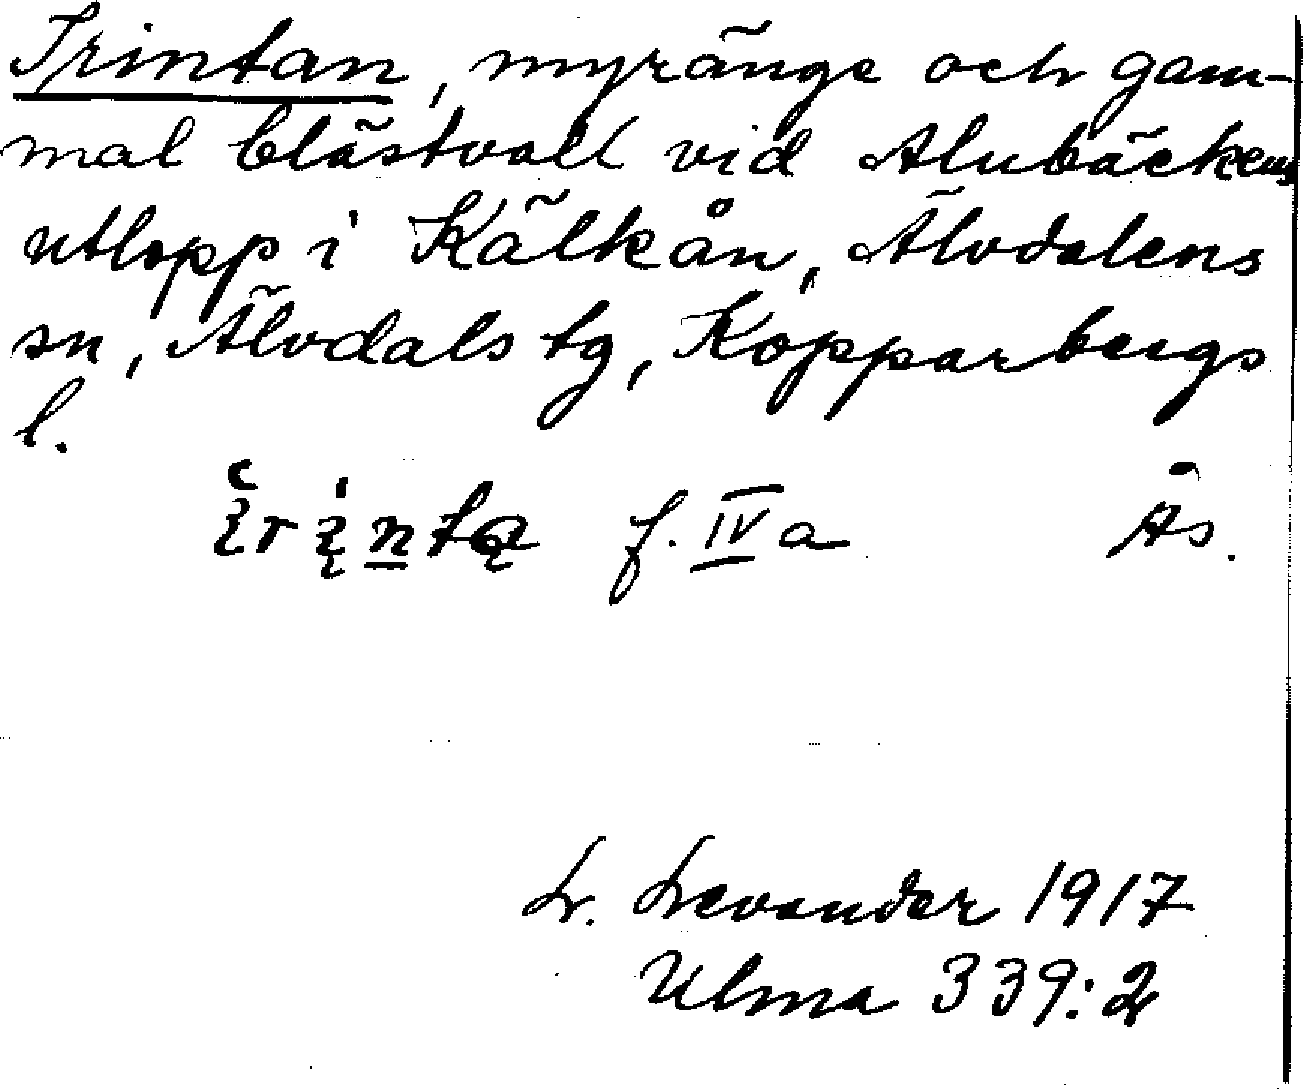 Trintan, myränge och gam-
mal blästvall vid Alubäckens
utlopp i Kälkån, Älvdalens
sn, Älvdals tg, Kopparbergs
l.
f. IV a Ås.
L. Levander 1917
Ulma 339:2